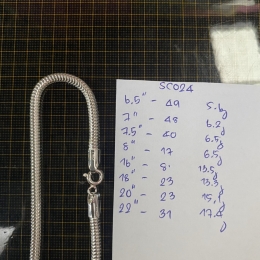 SC024
6.5" - 49 5.6g
7" - 48 6.2g
7.5" - 40 6.5g
8" - 17 6.5g
16" - 8. 13.5g
18" - 23 13.3g
20" - 23 15.1g
22" - 31 17.4g